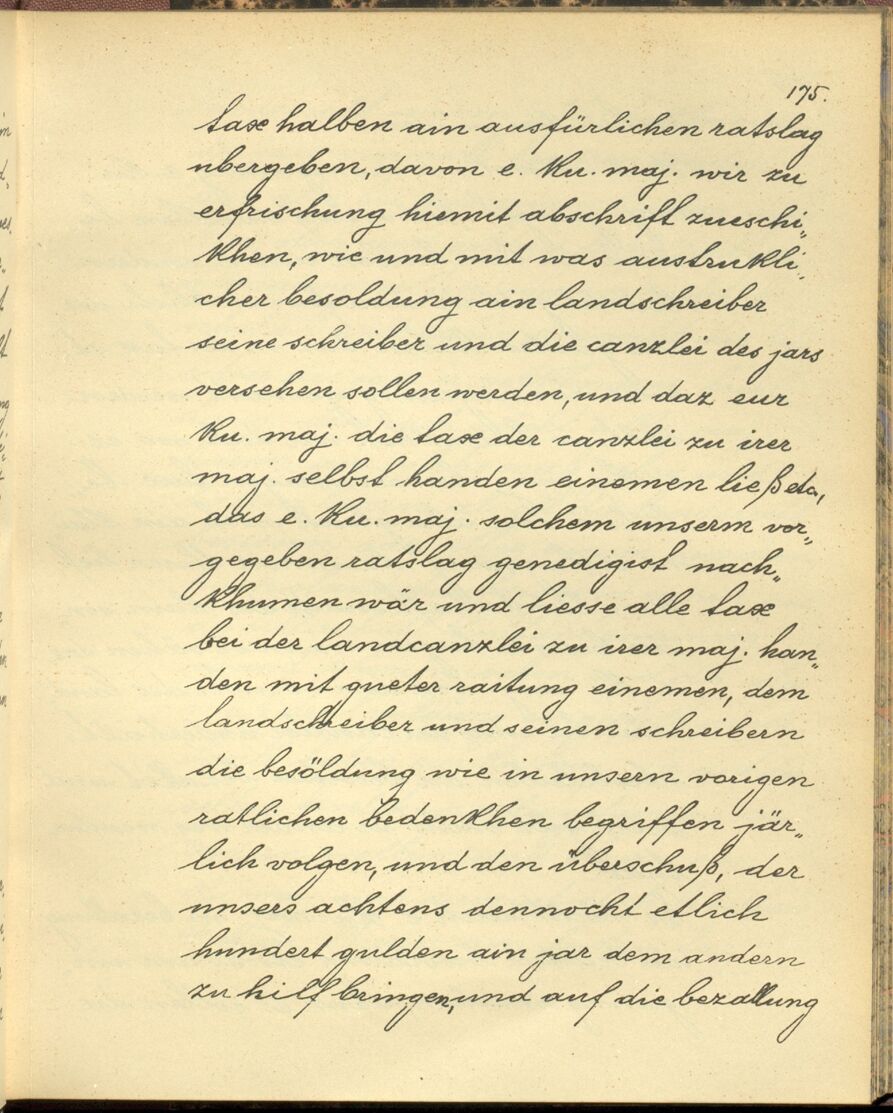 175.
taxe halben ain ausfürlichen ratslag
ubergeben, davon e. ku. maj. wir zu
erfrischung hiemit abschrift zueschi„
khen, wie und mit was austrukli„
cher besoldung ain landschreiber
seine schreiber und die canzlei des jars
versehen sollen werden, und daz eur
ku. maj. die taxe der canzlei zu irer
maj. selbst handen einemen ließ etc,
das e. ku. maj. solchem unserm vor„
gegeben ratslag genedigist nach„
khumen wär und liesse alle taxe
bei der landcanzlei zu irer maj. han„
den mit gueter raitung einemen, dem
landschreiber und seinen schreibern
die besöldung wie in unsern vorigen
ratlichen bedenkhen begriffen jär„
lich volgen, und den überschuß, der
unsers achtens dennocht etlich
hundert gulden ain jar dem andern
zu hilf bringen, und auf die bezallung